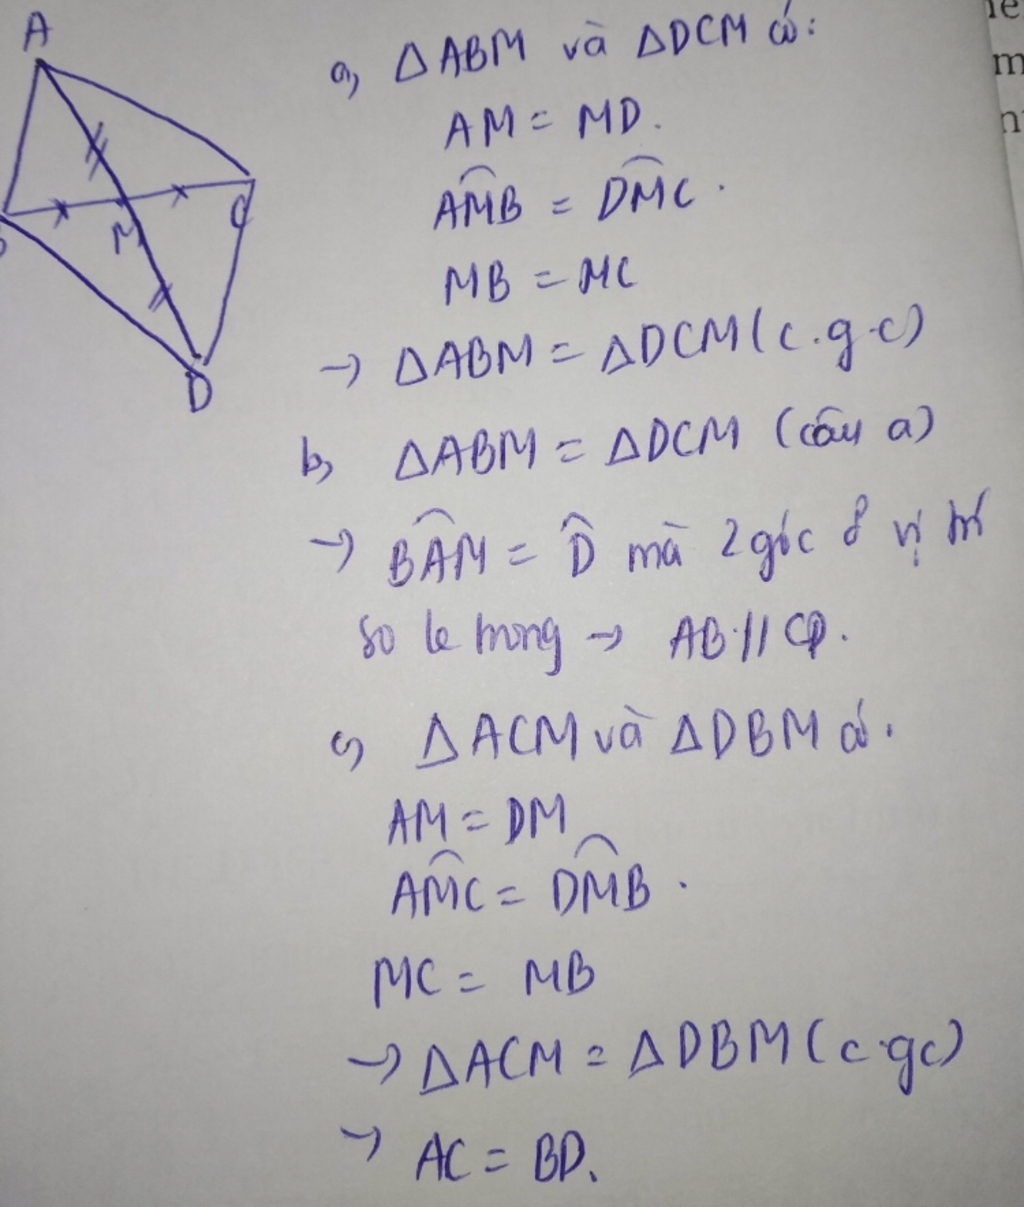 A
B
M
C
D
a, ΔABM và ΔDCM có:
AM = MD.
AMB = DMC.
MB = MC
→ ΔABM = ΔDCM (c.g.c)
b, ΔABM = ΔDCM (câu a)
→ BAM = D mà 2 góc ở vị trí
so le trong → AB // CD.
c, ΔACM và ΔDBM có.
AM = DM
AMC = DMB.
MC = MB
→ ΔACM = ΔDBM (c.gc)
→ AC = BD.